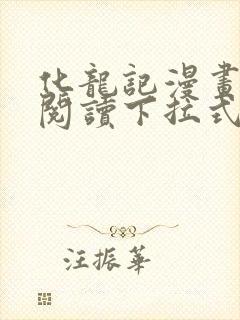 化龍記漫畫
閱讀下拉式
汪振華